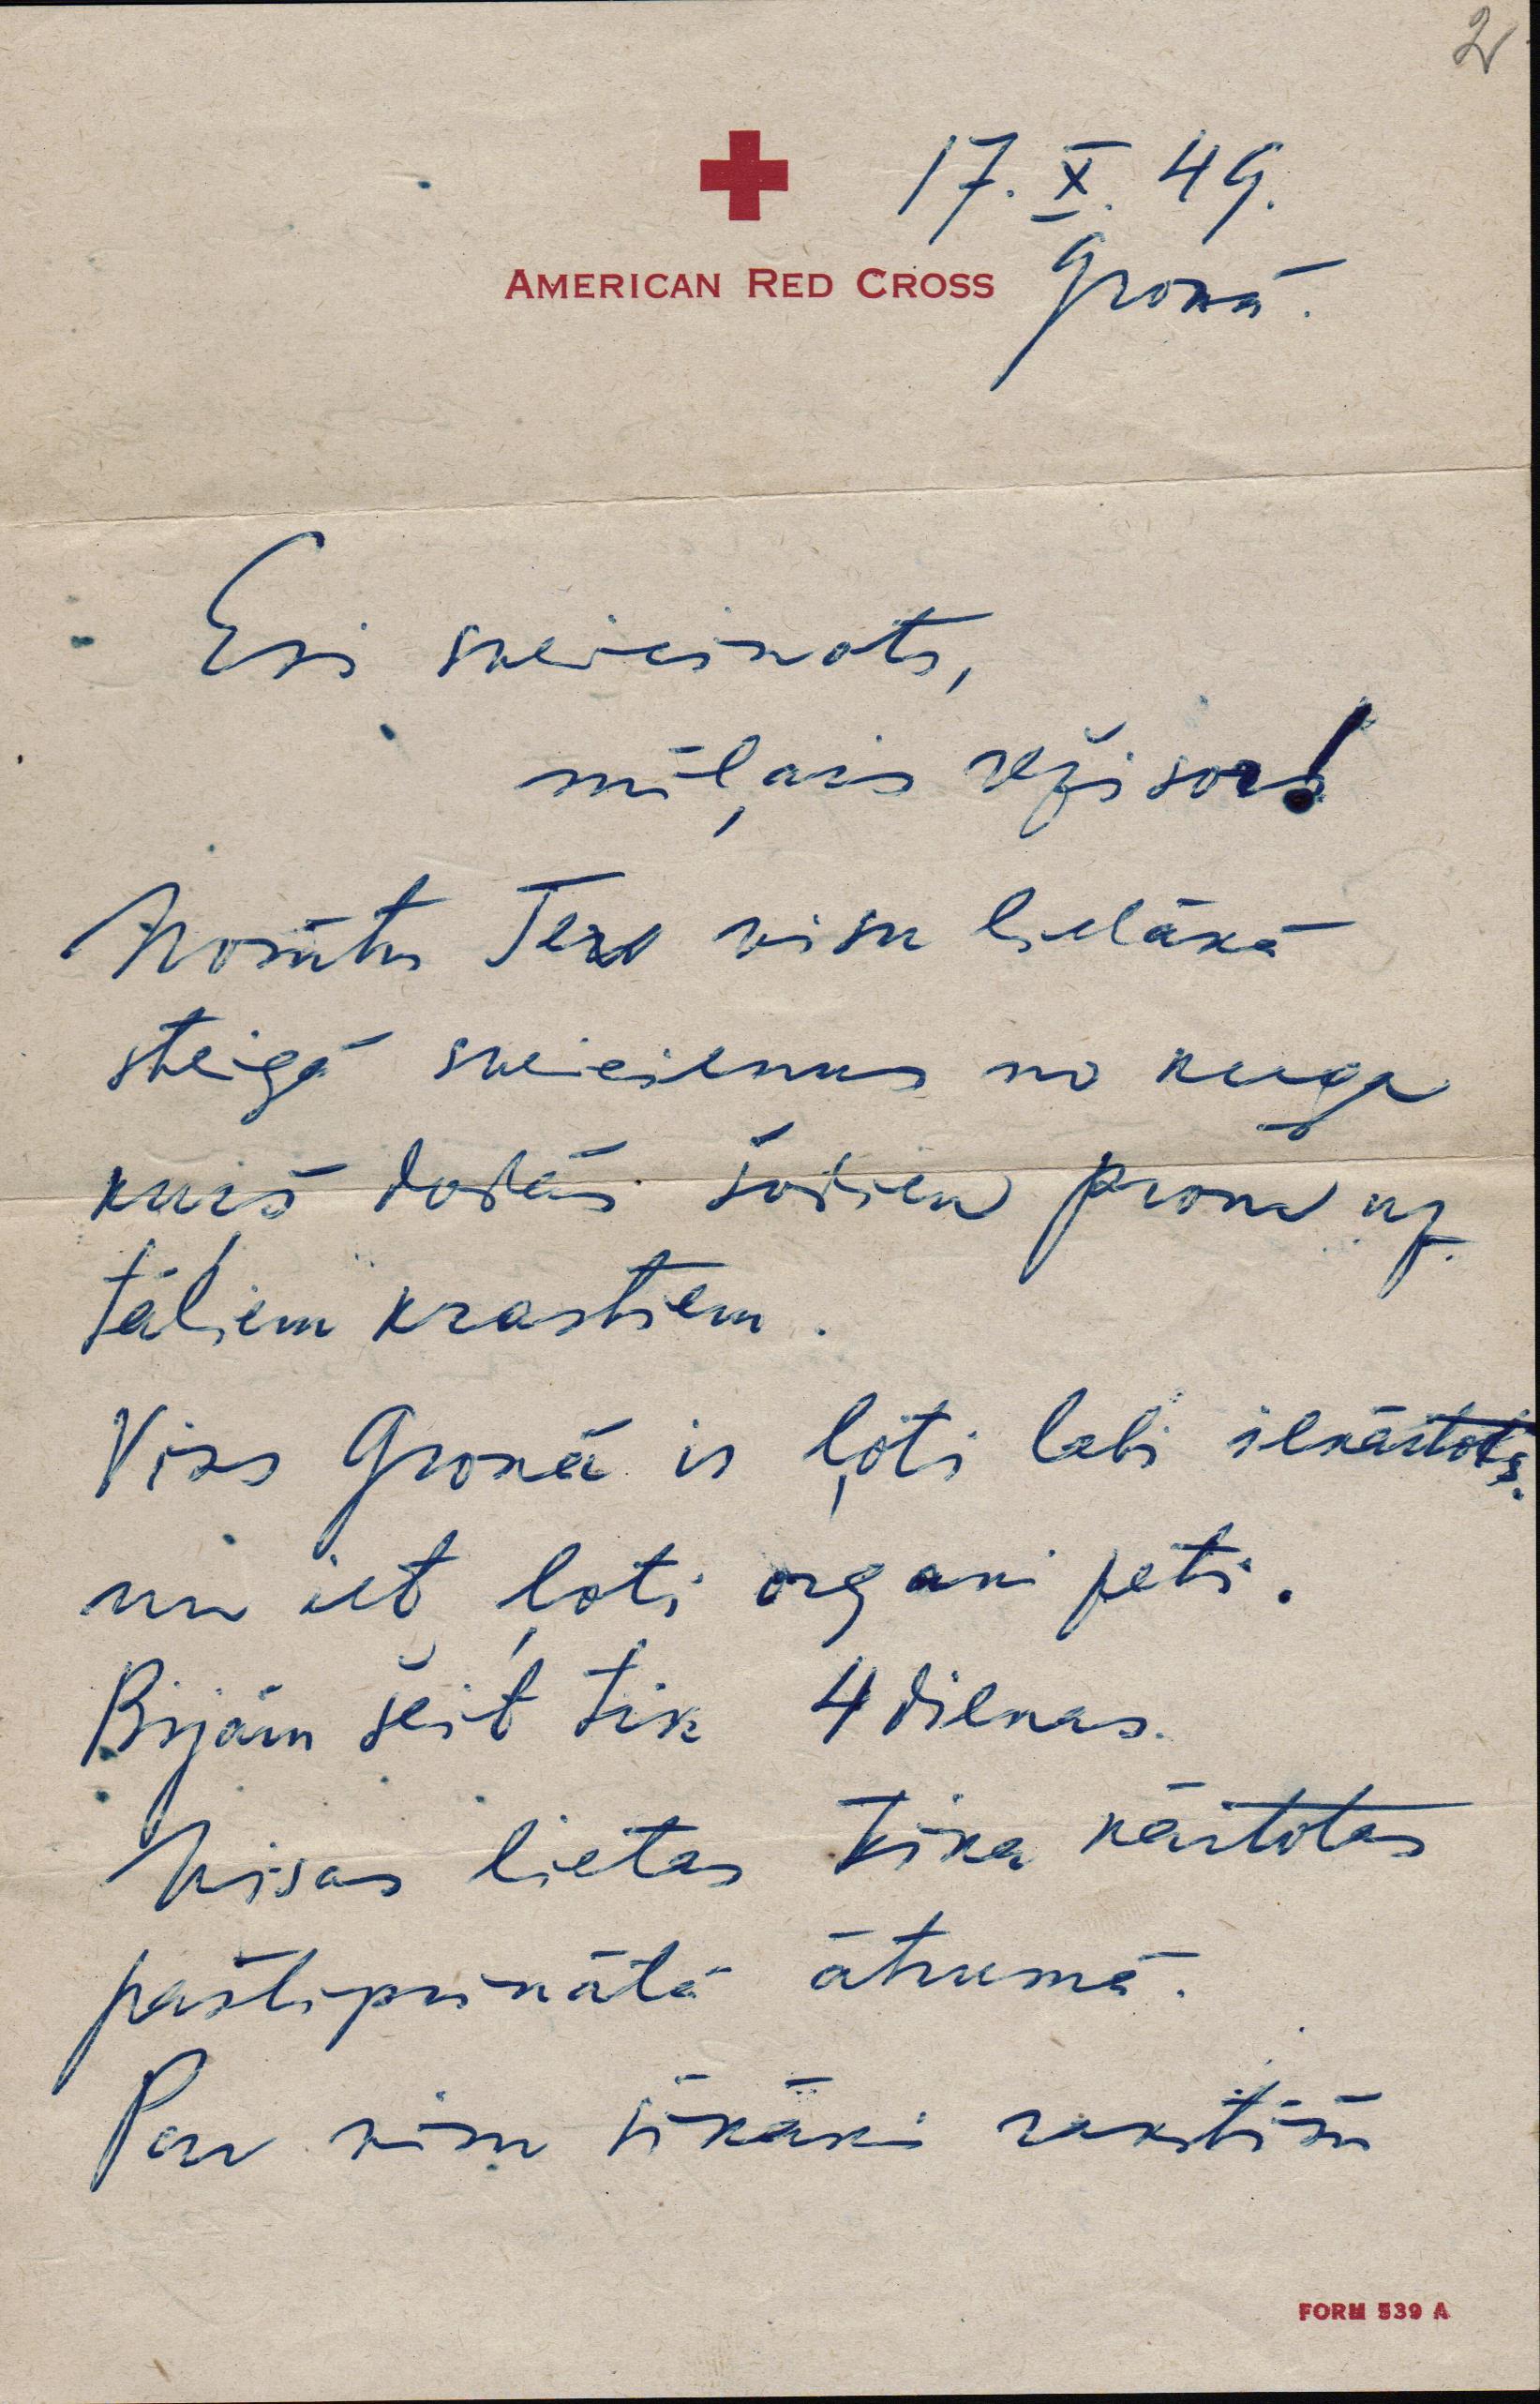 2
17. X. 49.
AMERICAN RED CROSS Gronā.
Esi sveicināts,
mīļais režisor!
Nosūtu Tev visu lielākā
steigā sveicienus no kuģa
kurš dodās šodien prom uz
tāļiem krastiem.
Viss Gronā ir ļoti labi iekārtots.
un iet ļoti organizēti.
Bijām šeit tik 4 dienas.
Visas lietas tika kārtotas
pastiprinātā ātrumā.
Par visu sīkāki rakstīšu
FORM 539 A